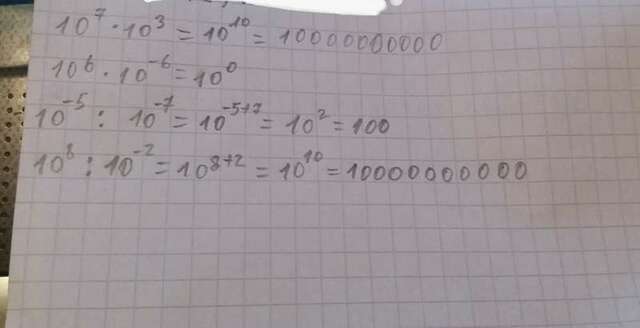 10⁷ · 10³ = 10¹⁰ = 10000000000
10⁶ · 10⁻⁶ = 10⁰
10⁻⁵ : 10⁻⁷ = 10⁻⁵⁺⁷ = 10² = 100
10⁸ : 10⁻² = 10⁸⁺² = 10¹⁰ = 10000000000